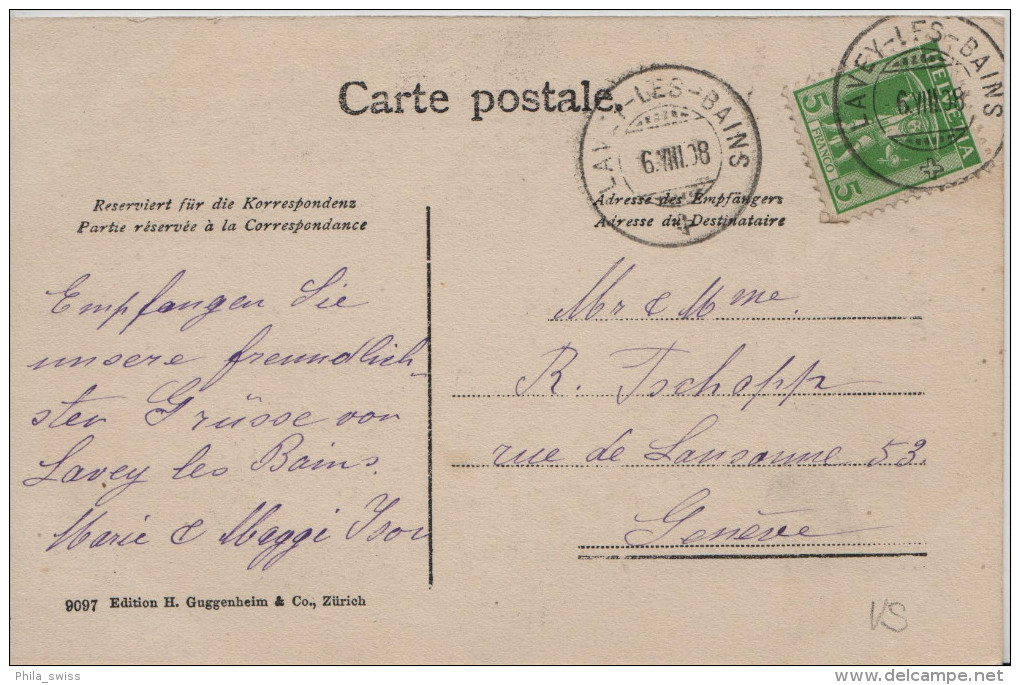 Carte postale.
LAVEY-LES-BAINS
6.VIII.08
LAVEY-LES-BAINS
6.VIII.08
HELVETIA
5 5
FRANCO
Reserviert für die Korrespondenz
Partie réservée à la Correspondance
Adresse des Empfängers
Adresse du Destinataire
Empfangen Sie
unsere freundlich-
sten Grüsse von
Lavey les Bains.
Marie & Maggi
Mr & Mme.
R. Tschopp
rue de Lausanne 53.
Genève
9097 Edition H. Guggenheim & Co., Zürich
VS
Phila_swiss
delcampe.net